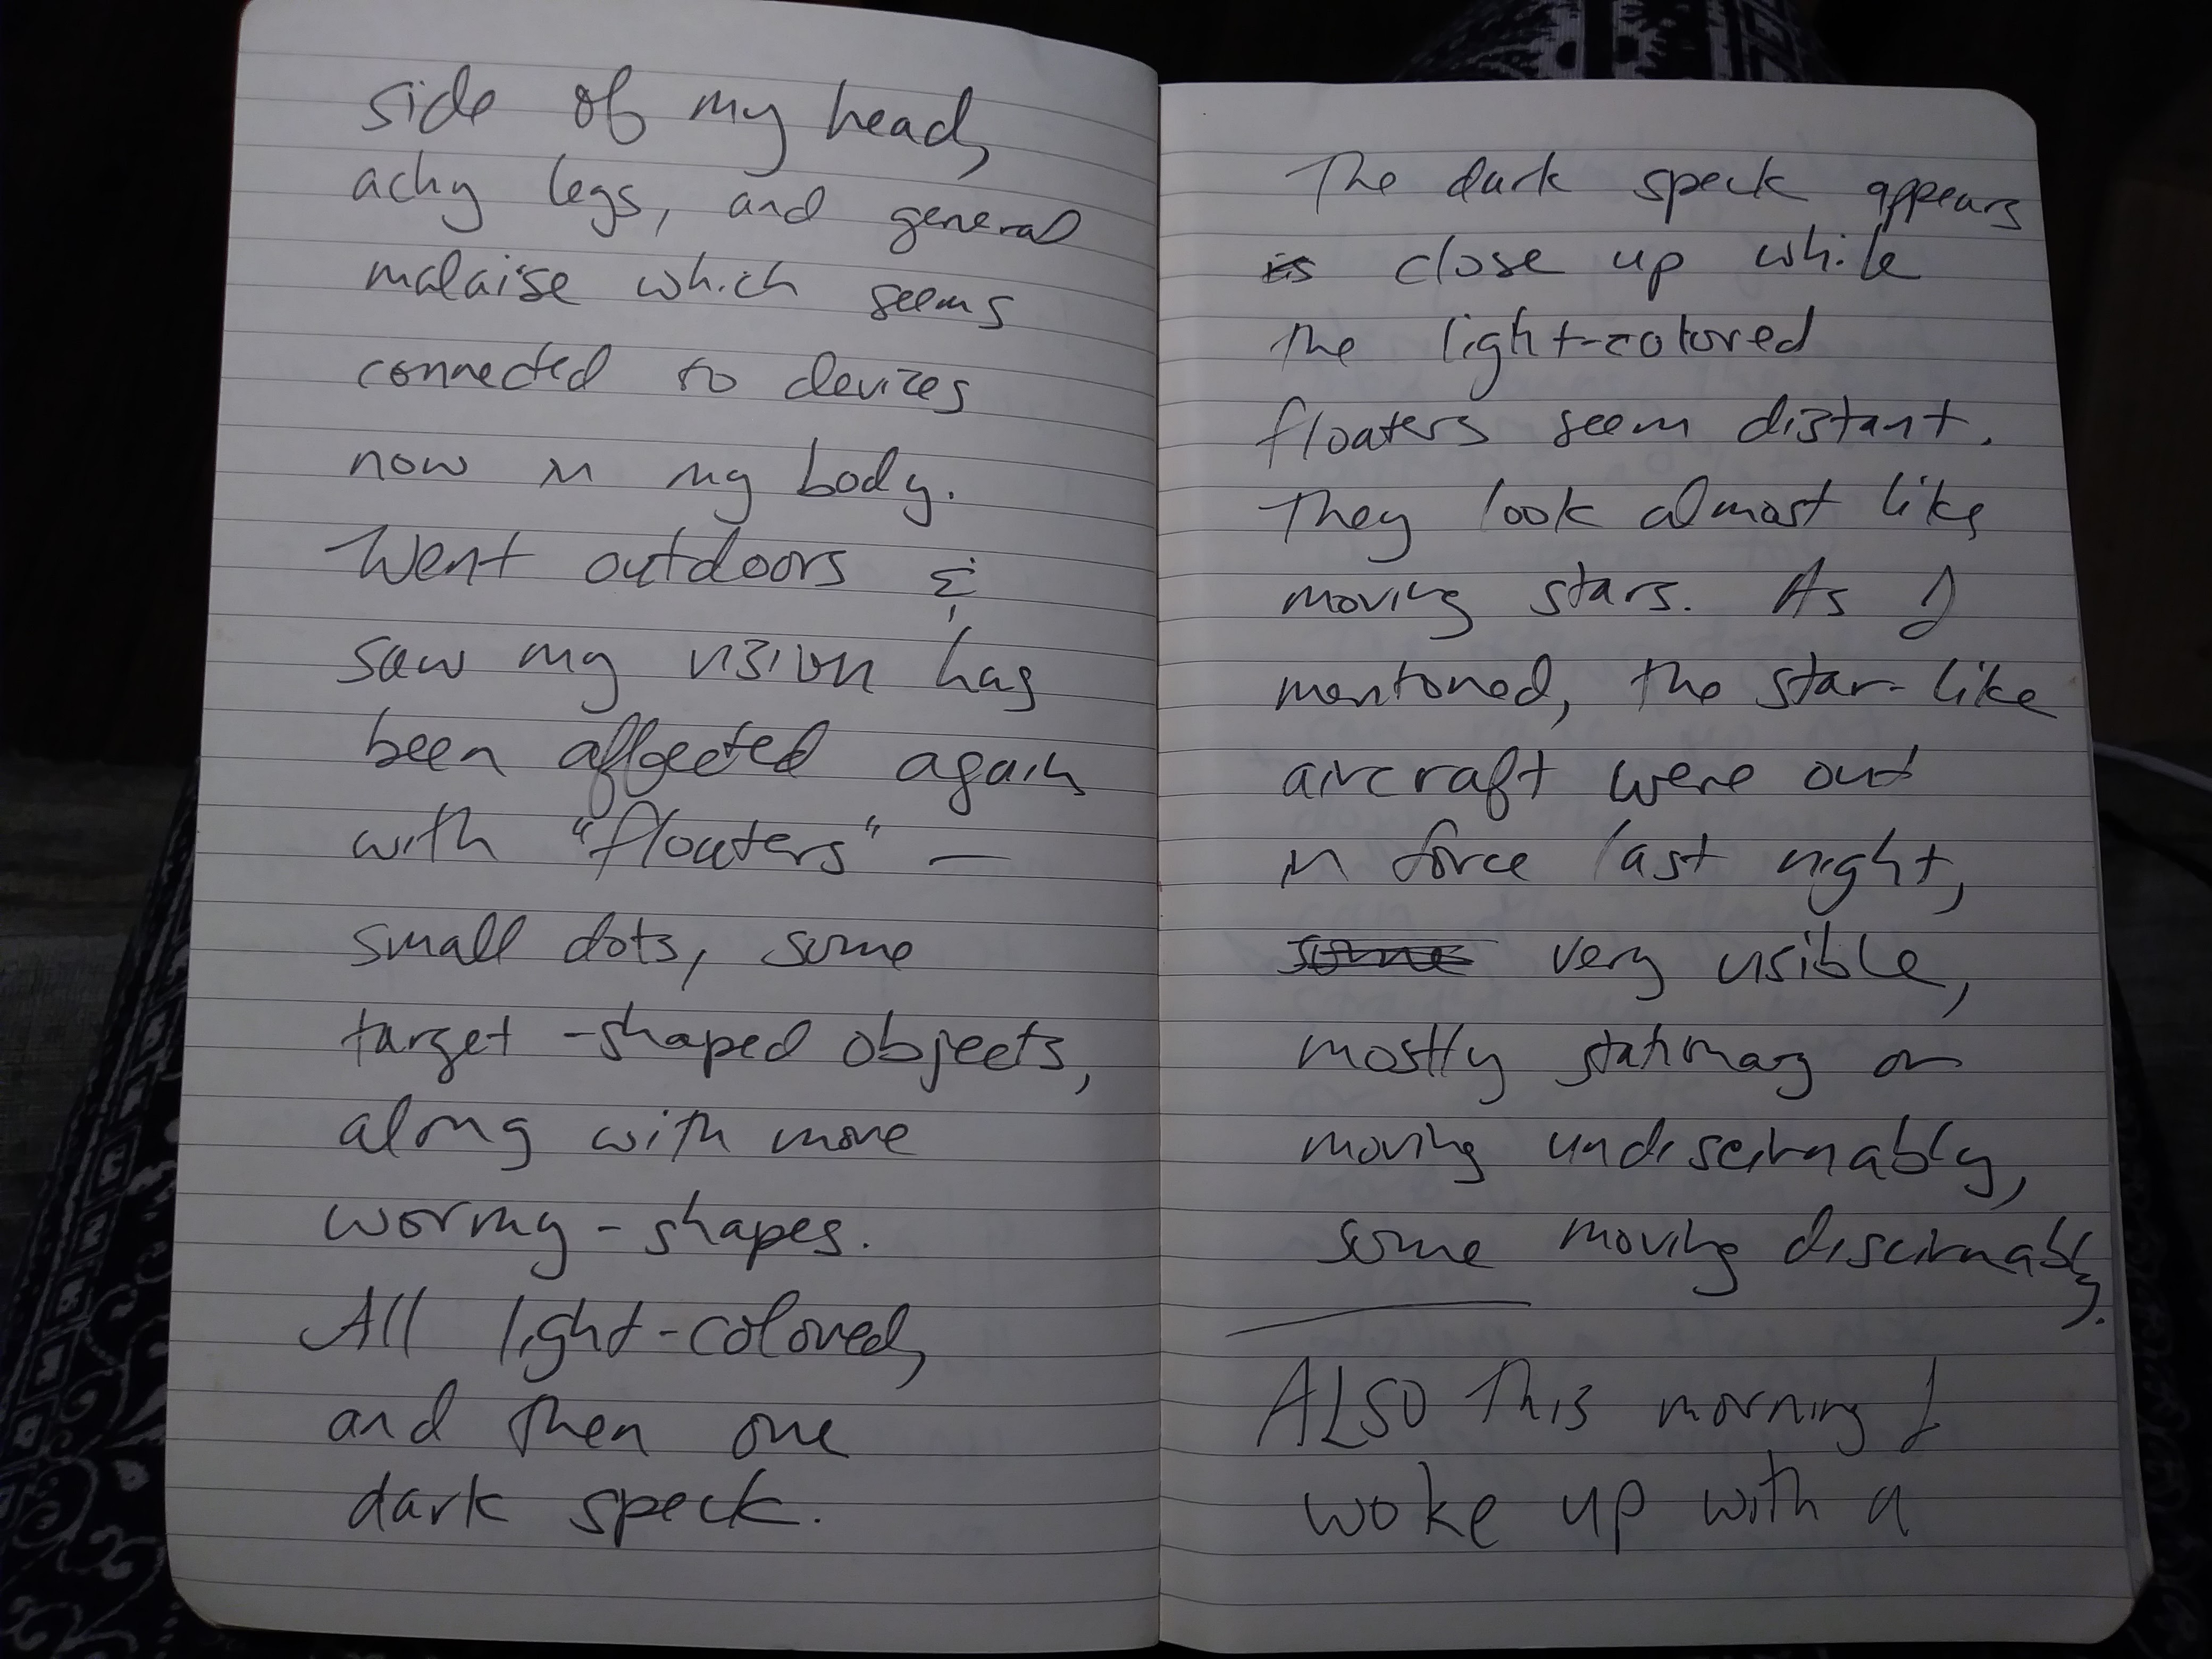 side of my head,
achy legs, and general
malaise which seems
connected to devices
now in my body.
Went outdoors &
saw my vision has
been affected again
with "floaters" —
small dots, some
target-shaped objects,
along with more
wormy-shapes.
All light-colored,
and then one
dark speck.
The dark speck appears
is close up while
the light-colored
floaters seem distant.
They look almost like
moving stars. As I
mentioned, the star-like
aircraft were out
in force last night,
some very visible,
mostly stationary or
moving undiscirnably,
some moving discirnably.
ALSO This morning I
woke up with a